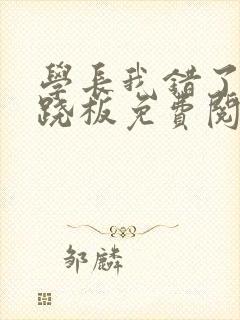 學長我錯了
跷板免費閱
邹麟